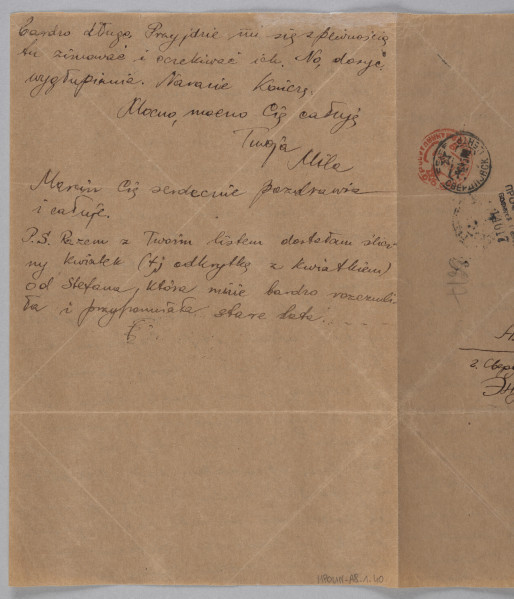 bardzo długo. Przyjdzie mi się z pewnością
tu zimować i oczekiwać ich. No, dosyć
wygłupiania. Narazie kończę.
Mocno, mocno Cię całuję
Twoja
Mila
Marcin Cię serdecznie pozdrawia
i całuje.
P.S. Razem z Twoim listem dostałam ślicz-
ny kwiatek (tj odkrytkę z kwiatkiem)
od Stefana, która mnie bardzo rozczuli-
ła i przypomniała stare lata.
г. Сверд